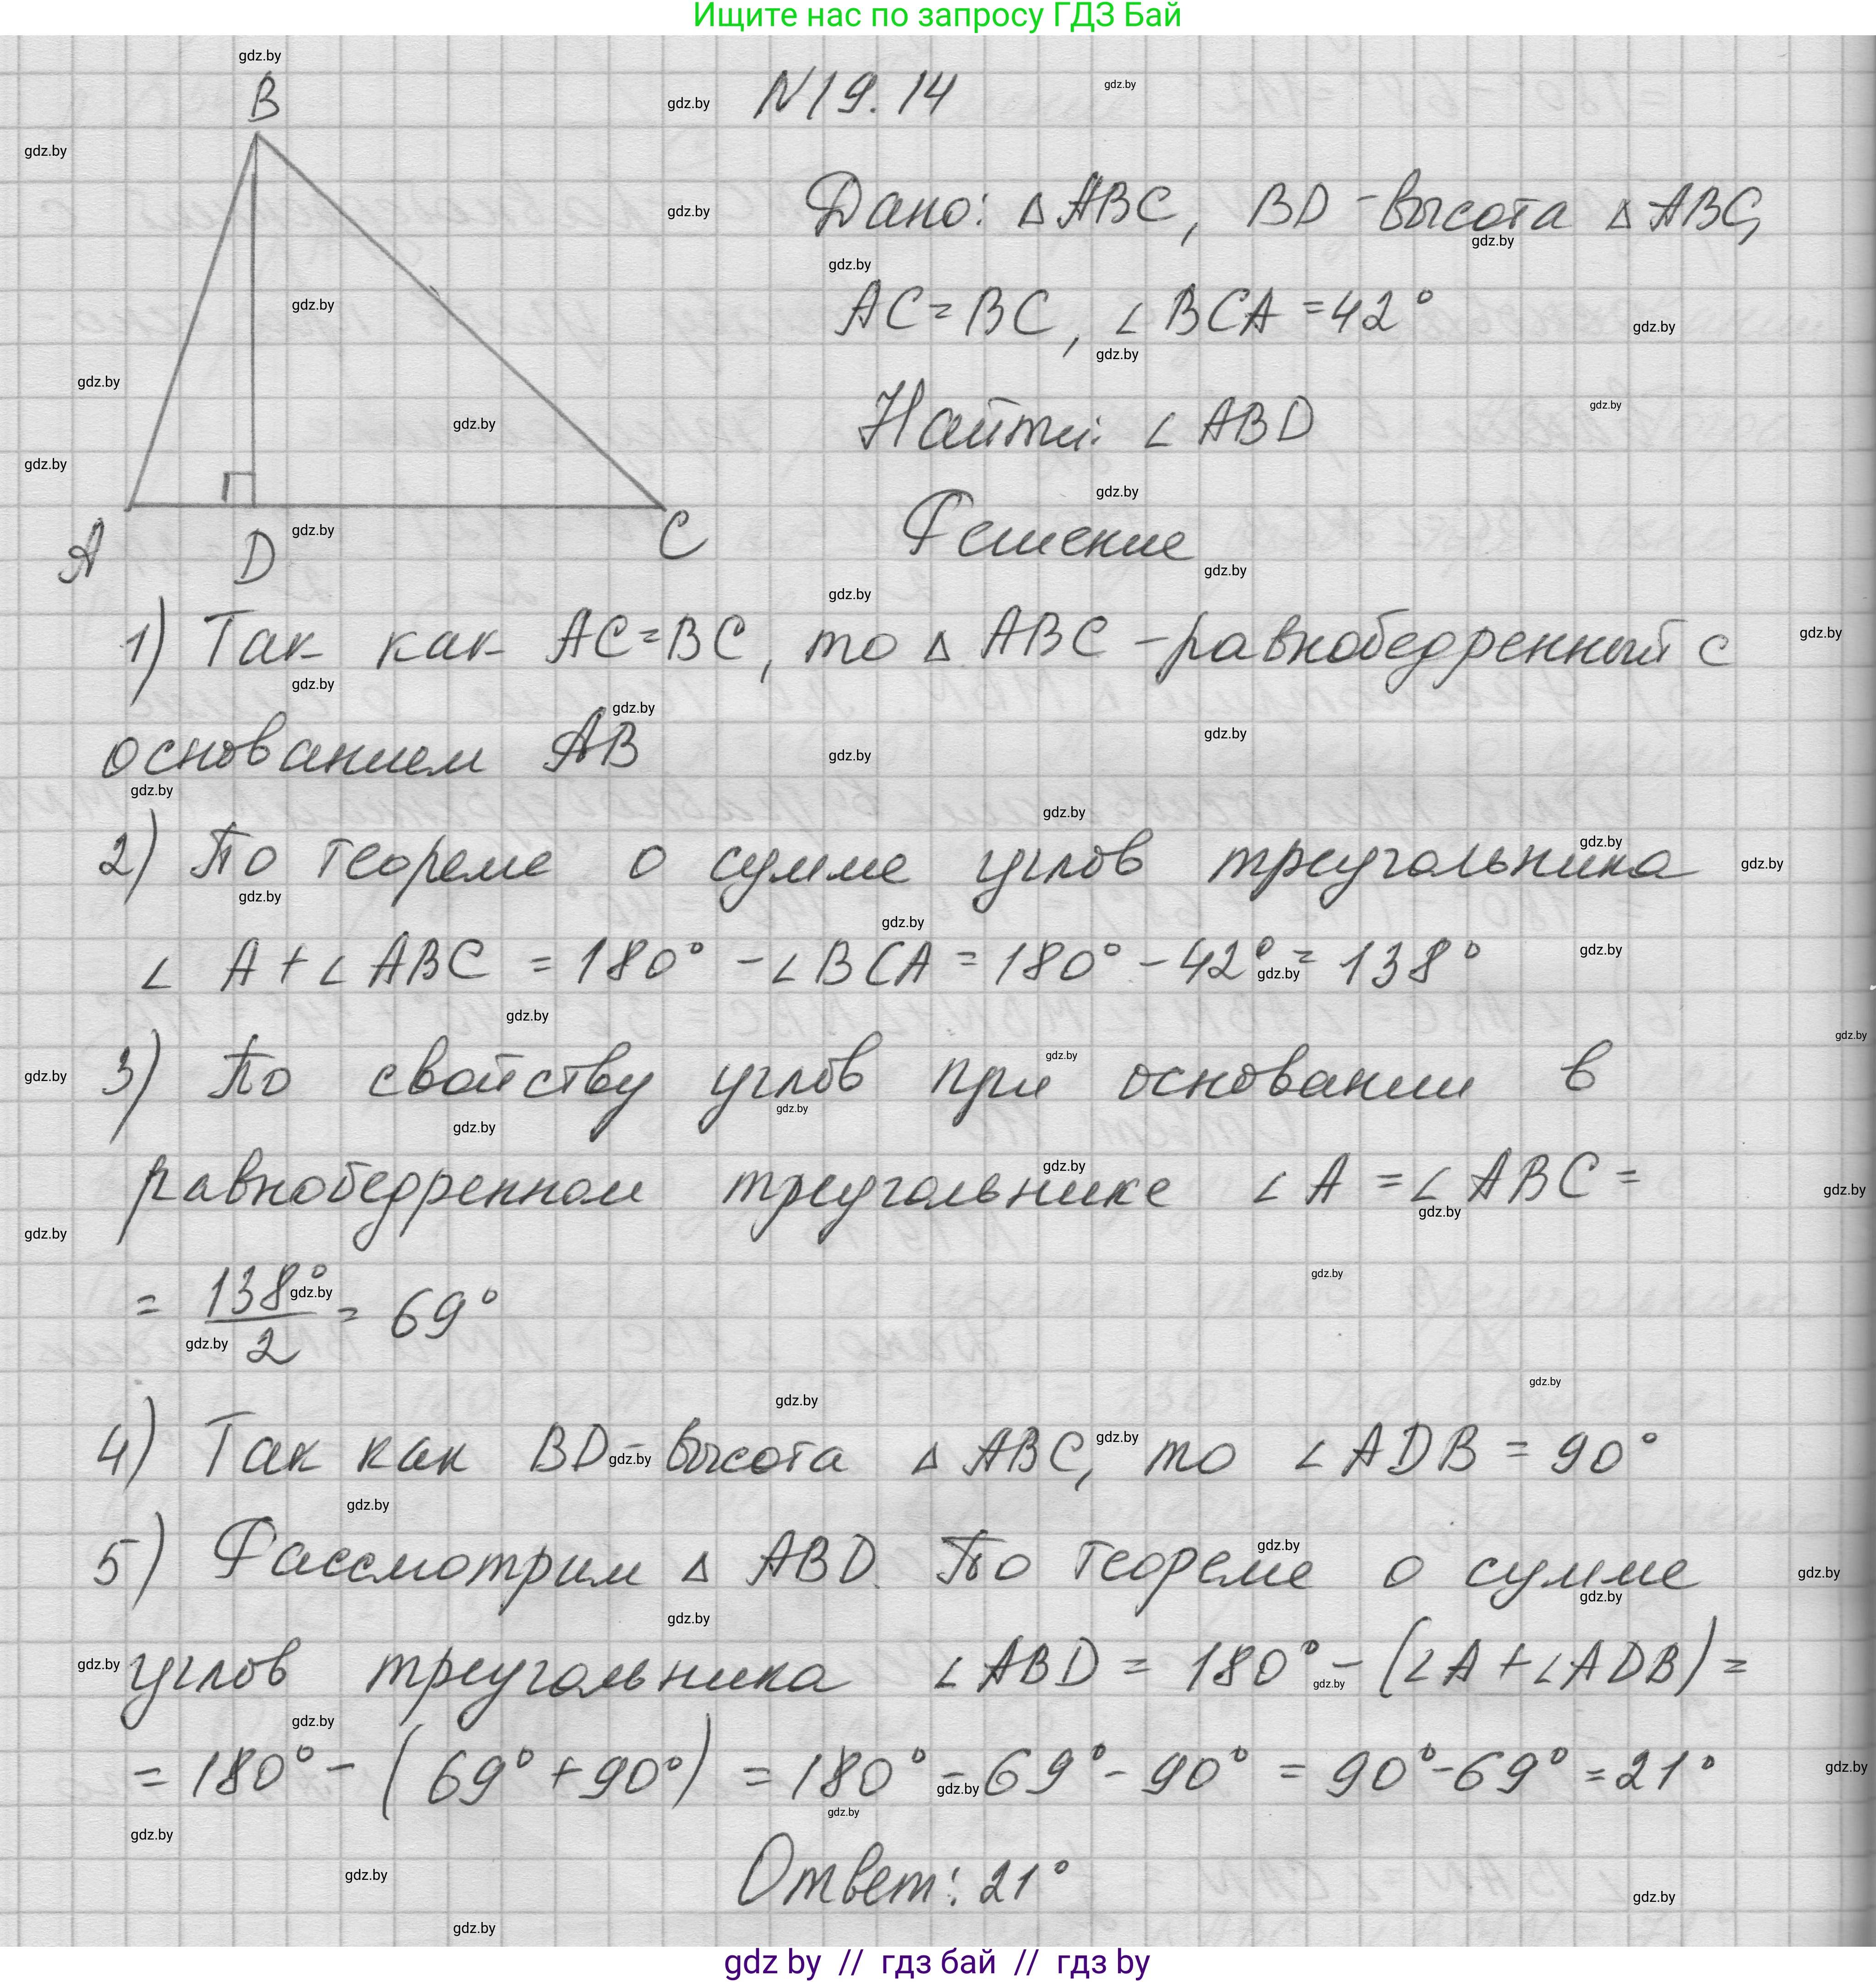 Ищите нас по запросу ГДЗ Бай
B
N19.14
Дано: △ABC, BD-высота △ABC,
AC=BC, ∠BCA=42°
Найти: ∠ABD
Решение
A D C
1) Так как AC=BC, то △ABC-равнобедренный с
основанием AB
2) По теореме о сумме углов треугольника
∠A+∠ABC=180°-∠BCA=180°-42°=138°
3) По свойству углов при основании в
равнобедренном треугольнике ∠A=∠ABC=
=138°/2=69°
4) Так как BD-высота △ABC, то ∠ADB=90°
5) Рассмотрим △ABD. По теореме о сумме
углов треугольника ∠ABD=180°-(∠A+∠ADB)=
=180°-(69°+90°)=180°-69°-90°=90°-69°=21°
Ответ: 21°
gdz by // гдз бай // гдз by